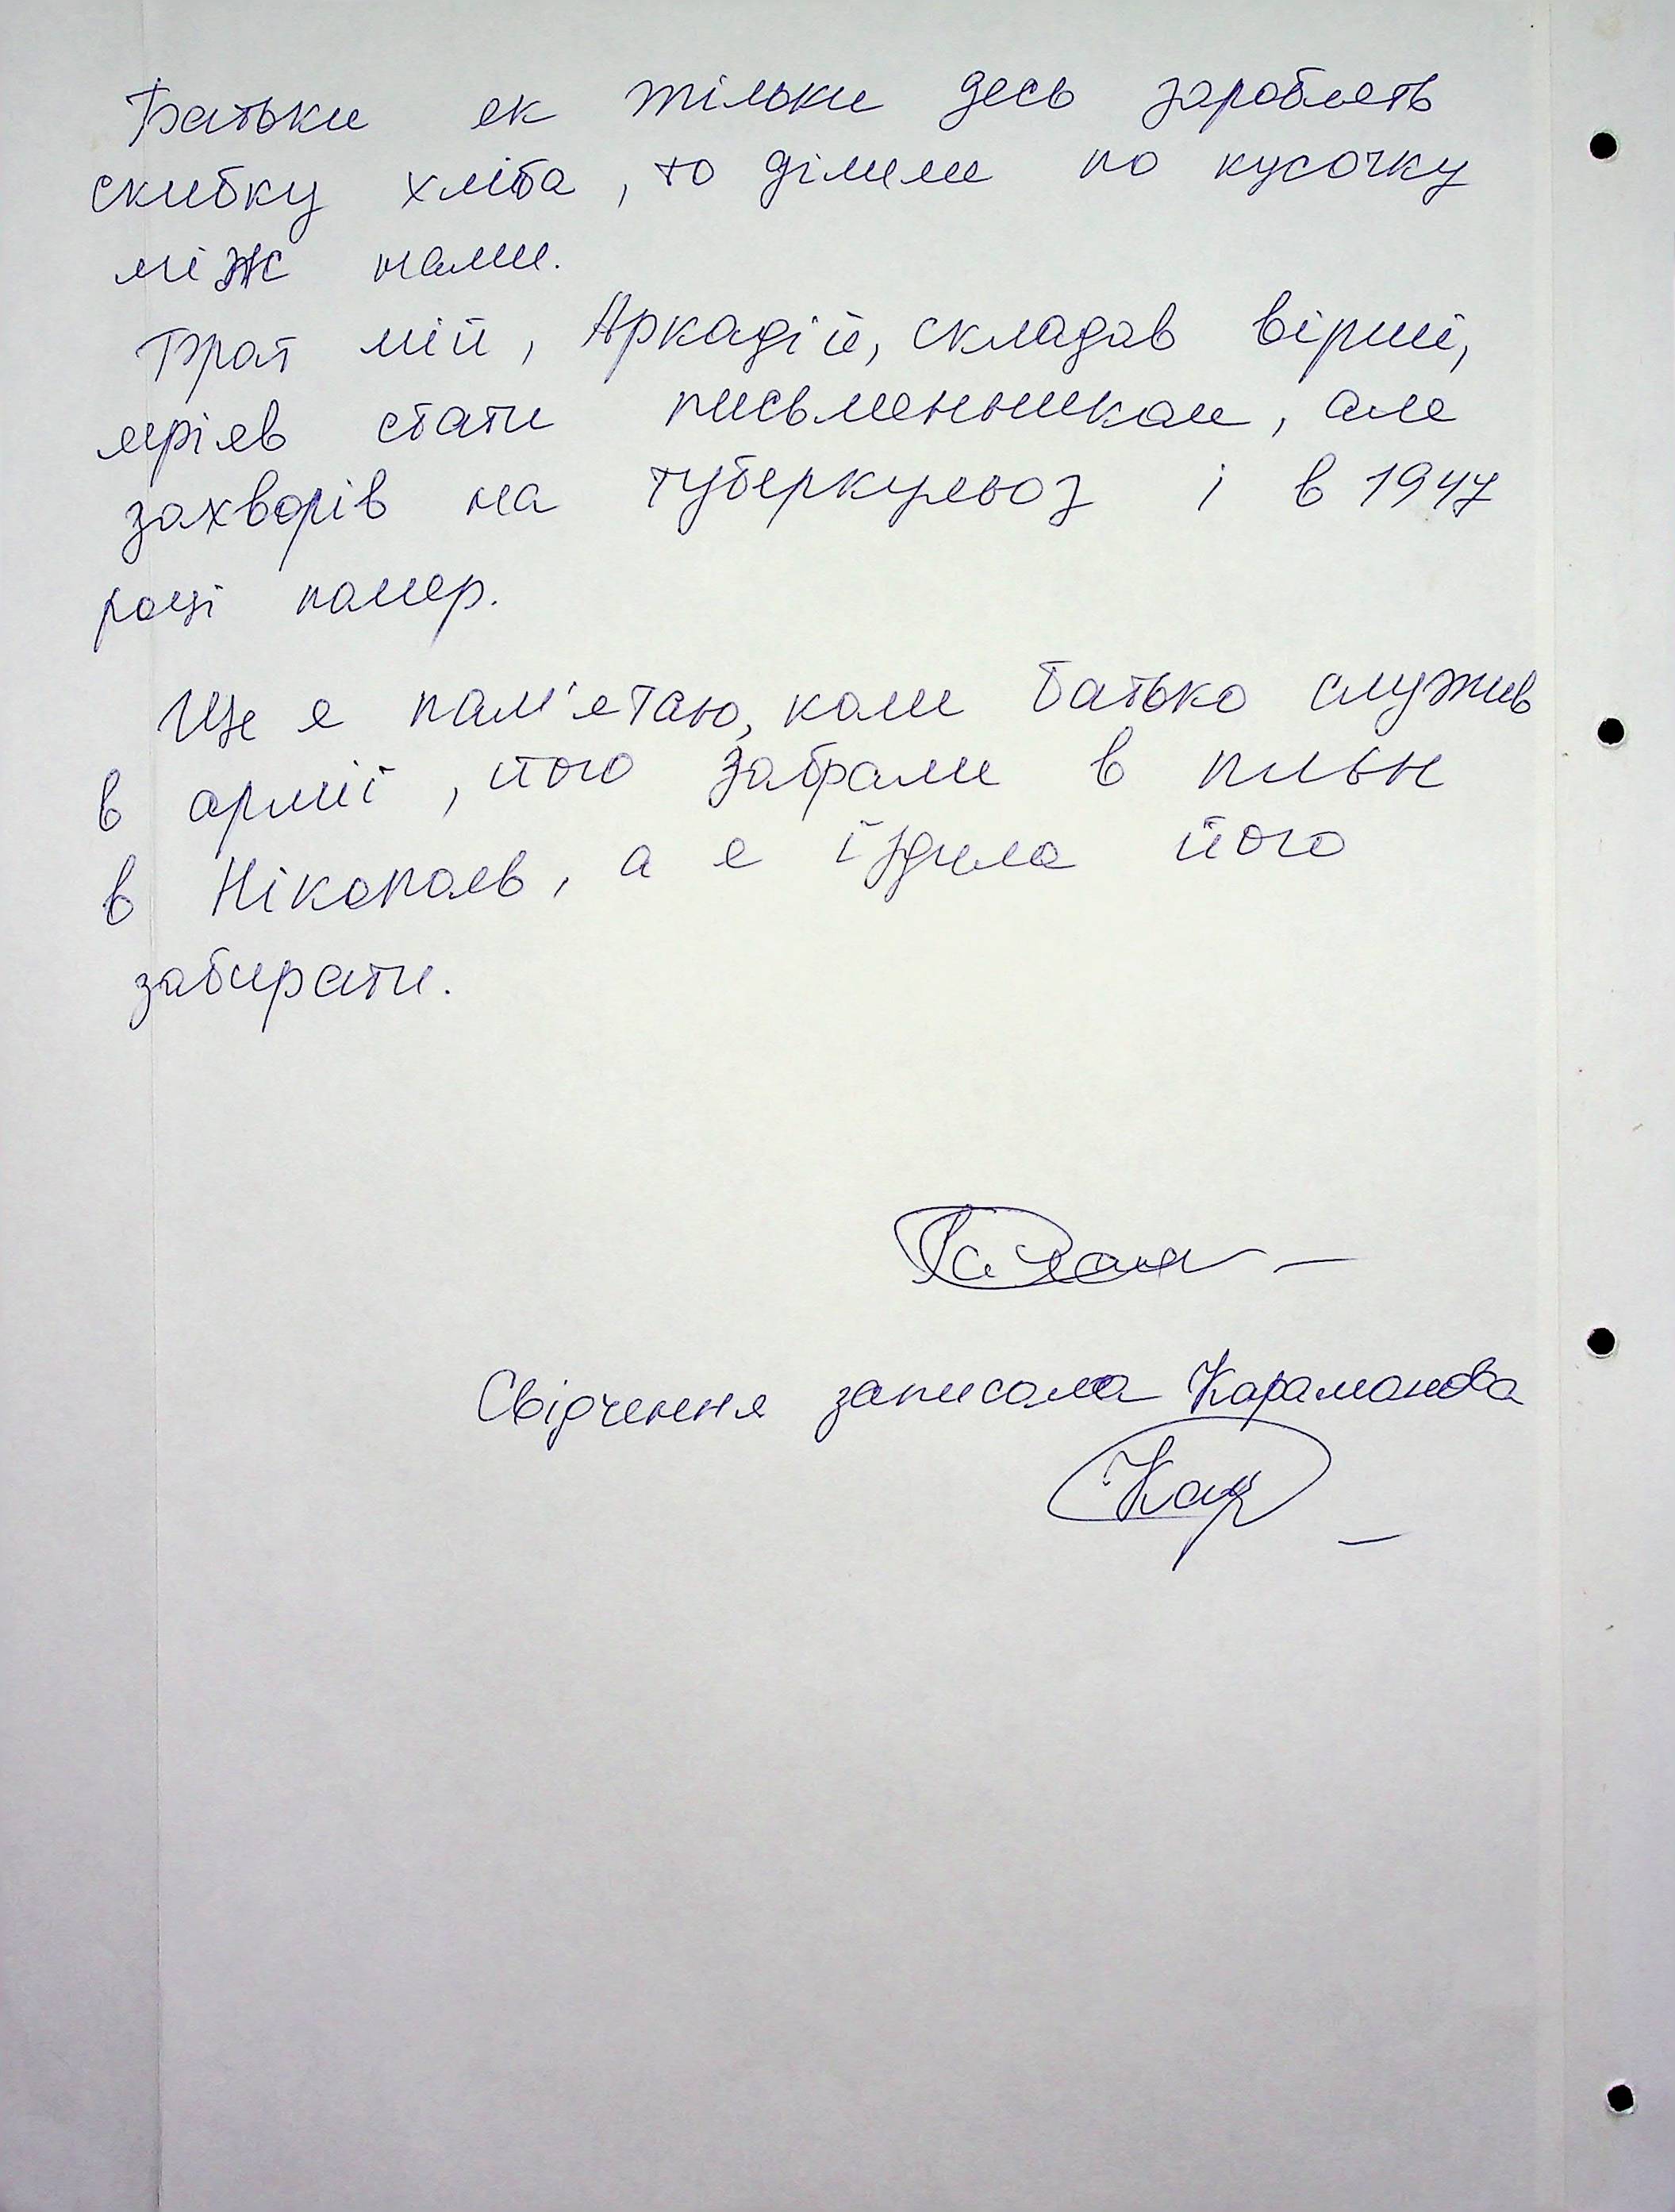 Батьки як тільки десь зароблять
скибку хліба, то ділили по кусочку
між нами.
Брат мій, Аркадій, складав вірші,
мріяв стати письменником, але
захворів на туберкульоз і в 1947
році помер.
Ще я пам'ятаю, коли батько служив
в армії, його забрали в пльн
в Нікополь, а я їздила його
забирати.
Свідчення записала Караманова
Кар